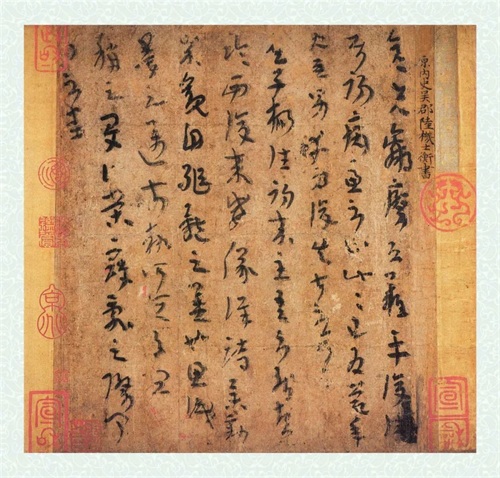 原內史吳郡陸機士衡書
彥先羸瘵恐難平復往屬
初病慮不止此此已為慶承使
唯男幸為復失前憂耳
吳子楊往初來主吾不能盡
臨西復來威儀詳跱舉動
成觀自軀體之美也思識
量之邁前執所恒有宜
稱之夏伯榮寇亂之際聞
問不悉